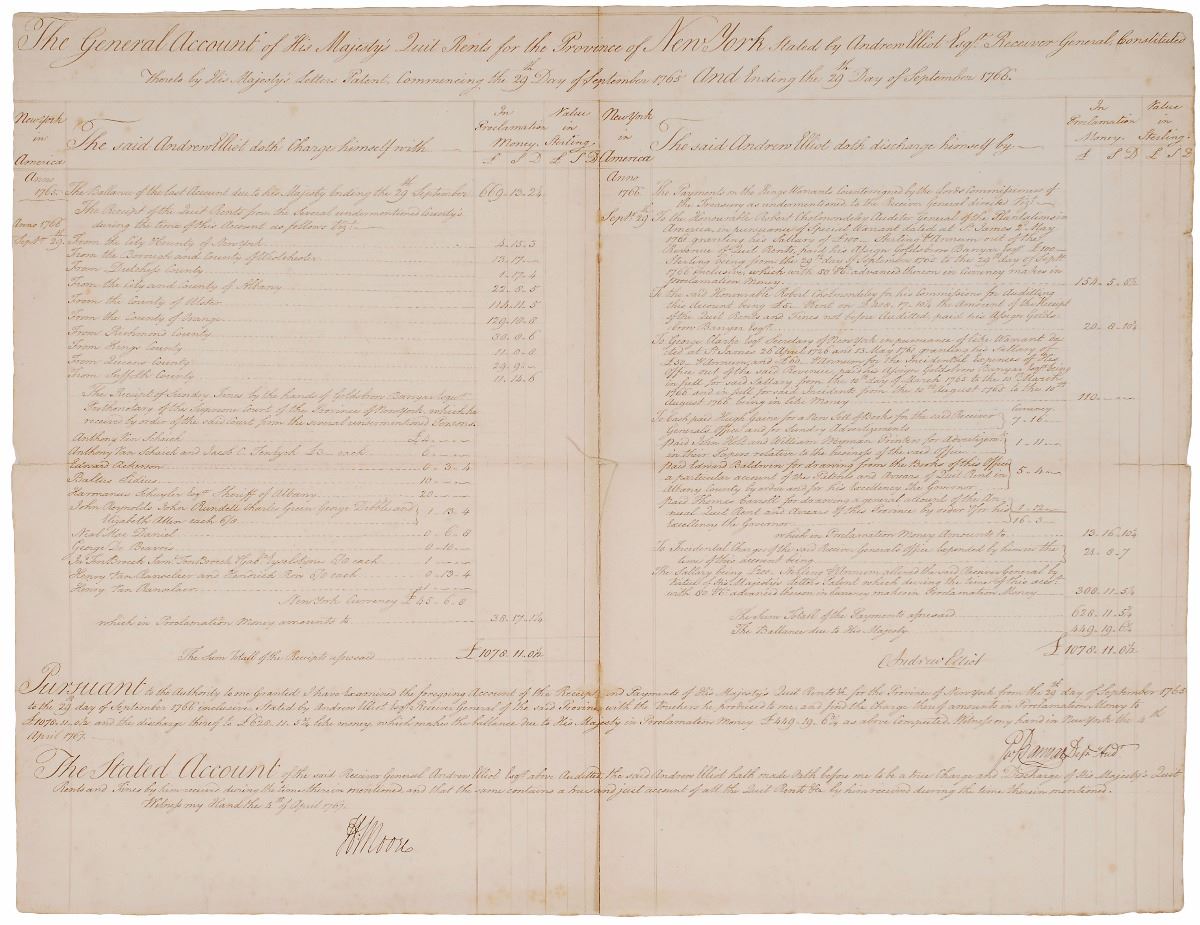 The General Account of His Majesty's Quit Rents for the Province of New York Stated by Andrew Elliot Esqr. Receiver General, Constituted
thereto by His Majesty's Letters Patent, Commencing the 29th Day of September 1765 And Ending the 29th Day of September 1766.
New York in America
The said Andrew Elliot doth Charge himself with
In Proclamation Money. £ S D
Value in Sterling. £ S D
Anno 1765
The Ballance of the last Account due to his Majesty Ending the 29th September 669-13-2¼
The Receipt of the Quit Rents from the Several undermentioned County's
during the time of this Account as follows Vizt.
Anno 1766
Septr. 29
From the City & County of New York 4-15-3
From the Borough and County of Westchester 13-17-
From Dutchess County 1-17-4
From the City and County of Albany 22-8-5
From the County of Ulster 114-11-5
From the County of Orange 129-10-8
From Richmond County 30-0-6
From Kings County 11-0-8
From Queens County 29-9-
From Suffolk County 11-14-6
The Receipt of Sundry Fines by the hands of Goldsbrow Banyar Esqr.
Prothonotary of the Supreme Court of the Province of New York, which he
received by order of the said Court from the several undermentioned Persons.
Anthony Van Schaick
Anthony Van Schaick and Jacob C. Teneyck £3 each 6
Edward Ackerson 0-3-4
Baltus Lidius 10
Harmanus Schuyler Esqr. Sheriff of Albany 20
John Reynolds John Rundell Charles Green George Dibble and
Elizabeth Allin each 6/8 1-13-4
Neal Mac Daniel 0-6-8
George De Beavois 0-10-
1
Henry Van Ranselaer and Do each 0-13-4
Henry Van Ranselaer
New York Currency £45-6-8
which in Proclamation Money amounts to 38-17-1¼
The Sum Totall of the Receipts aforesaid £1078-11-0½
New York in America
The said Andrew Elliot doth discharge himself by
In Proclamation Money. £ S D
Value in Sterling. £ S D
Anno 1766
The Payments on the Kings Warrants Countersigned by the Lords Commissioners of
the Treasury as undermentioned to the Receiver General directed Vizt.
Septr. 29
To the Honourable Robert Cholmondeley Auditor General of the Plantations in
America in pursuance of Special Warrant dated at St. James 2d May
1761 granting his Sallary of £100 Sterling Annum out of the
Revenue of Quit Rents, paid his Assign Goldsbrow Banyar Esqr. £100
Sterling being from the 29th day of September 1765 to the 29th day of Septr.
1766 Inclusive, which with advanced thereon in Currency makes in
Proclamation Money. 154-5-8½
To the said Honourable Robert Cholmondeley for his Commissions for Auditing
this Account being £5 Cent on £408-17-10¼ the Amount of the Receipt
of the Quit Rents and Fines not before Audited, paid his Assign Golds-
brow Banyar Esqr. 20-8-10¼
To George Clarke Esqr. Secretary of New York in pursuance of like Warrant da-
ted at St. James 26 April 1726 and 13 May 1761 granting his Sallary of
£30 Annum, and £60 Annum for the Incidental Expences of His
Office out of the said Revenue, paid his Assign Goldsbrow Banyar Esqr. being
in full for said Sallary from the 18th day of March 1765 to the 18th March
1766 and in full for said Incidents from the 15th August 1765 to the 15th
August 1766 being in like Money 110
To Cash paid Hugh Gaine for a New Sett of Books for the said Receiver Currency
Generals Office and for Sundry Advertizements 7-16-
Paid John Holt and William Weyman Printers for Advertizing
in their Papers relative to the business of the said Office 1-11-
Paid Edward Baldwin for drawing from the Books of this Office
a particular account of the Patents and Arrears of Quit Rent in
Albany County by order and for his Excellency the Governor 5-4-
Paid Thomas Carroll for drawing a general account of the An-
nual Quit Rent and Arrears of this Province by order & for his
Excellency the Governor 1-12-
16-3-
which in Proclamation Money Amounts to 13-16-10¼
To Incidental Charges of the said Receiver Generals Office expended by him in the
time of this account being 21-8-7
The Sallary being £200 Sterling Annum allowed the said Receiver General by
Virtue of His Majesty's Letters Patent which during the time of this acct.
with advanced thereon in Currency makes in Proclamation Money 308-11-5¼
The Sum Totall of the Payments aforesaid 628-11-5¾
The Ballance due to His Majesty 449-19-6¾
£1078-11-0½
Andrew Elliot
Pursuant to the Authority to me Granted I have Examined the foregoing Account of the Receipts and Payments of His Majesty's Quit Rents &c. for the Province of New York from the 29th day of September 1765
to the 29 day of September 1766 inclusive, Stated by Andrew Elliot Esqr. Receiver General of the said Province, with the Vouchers he produced to me, and find the Charge thereof amounts in Proclamation Money to
£1078-11-0½ and the discharge thereof to £628-11-5¾ like money, which makes the ballance due to His Majesty in Proclamation Money £449-19-6¾ as above Computed. Witness my hand in New York the 4th
April 1767.
Go. Banyar Depy. Audr.
The Stated Account of the said Receiver General Andrew Elliot Esqr. above Audited, the said Andrew Elliot hath made Oath before me to be a true Charge and Discharge of His Majesty's Quit
Rents and Fines by him received during the time therein mentioned and that the same contains a true and just account of all the Quit Rents &c. by him received during the time therein mentioned.
Witness my Hand the 4th of April 1767.
H. Moore